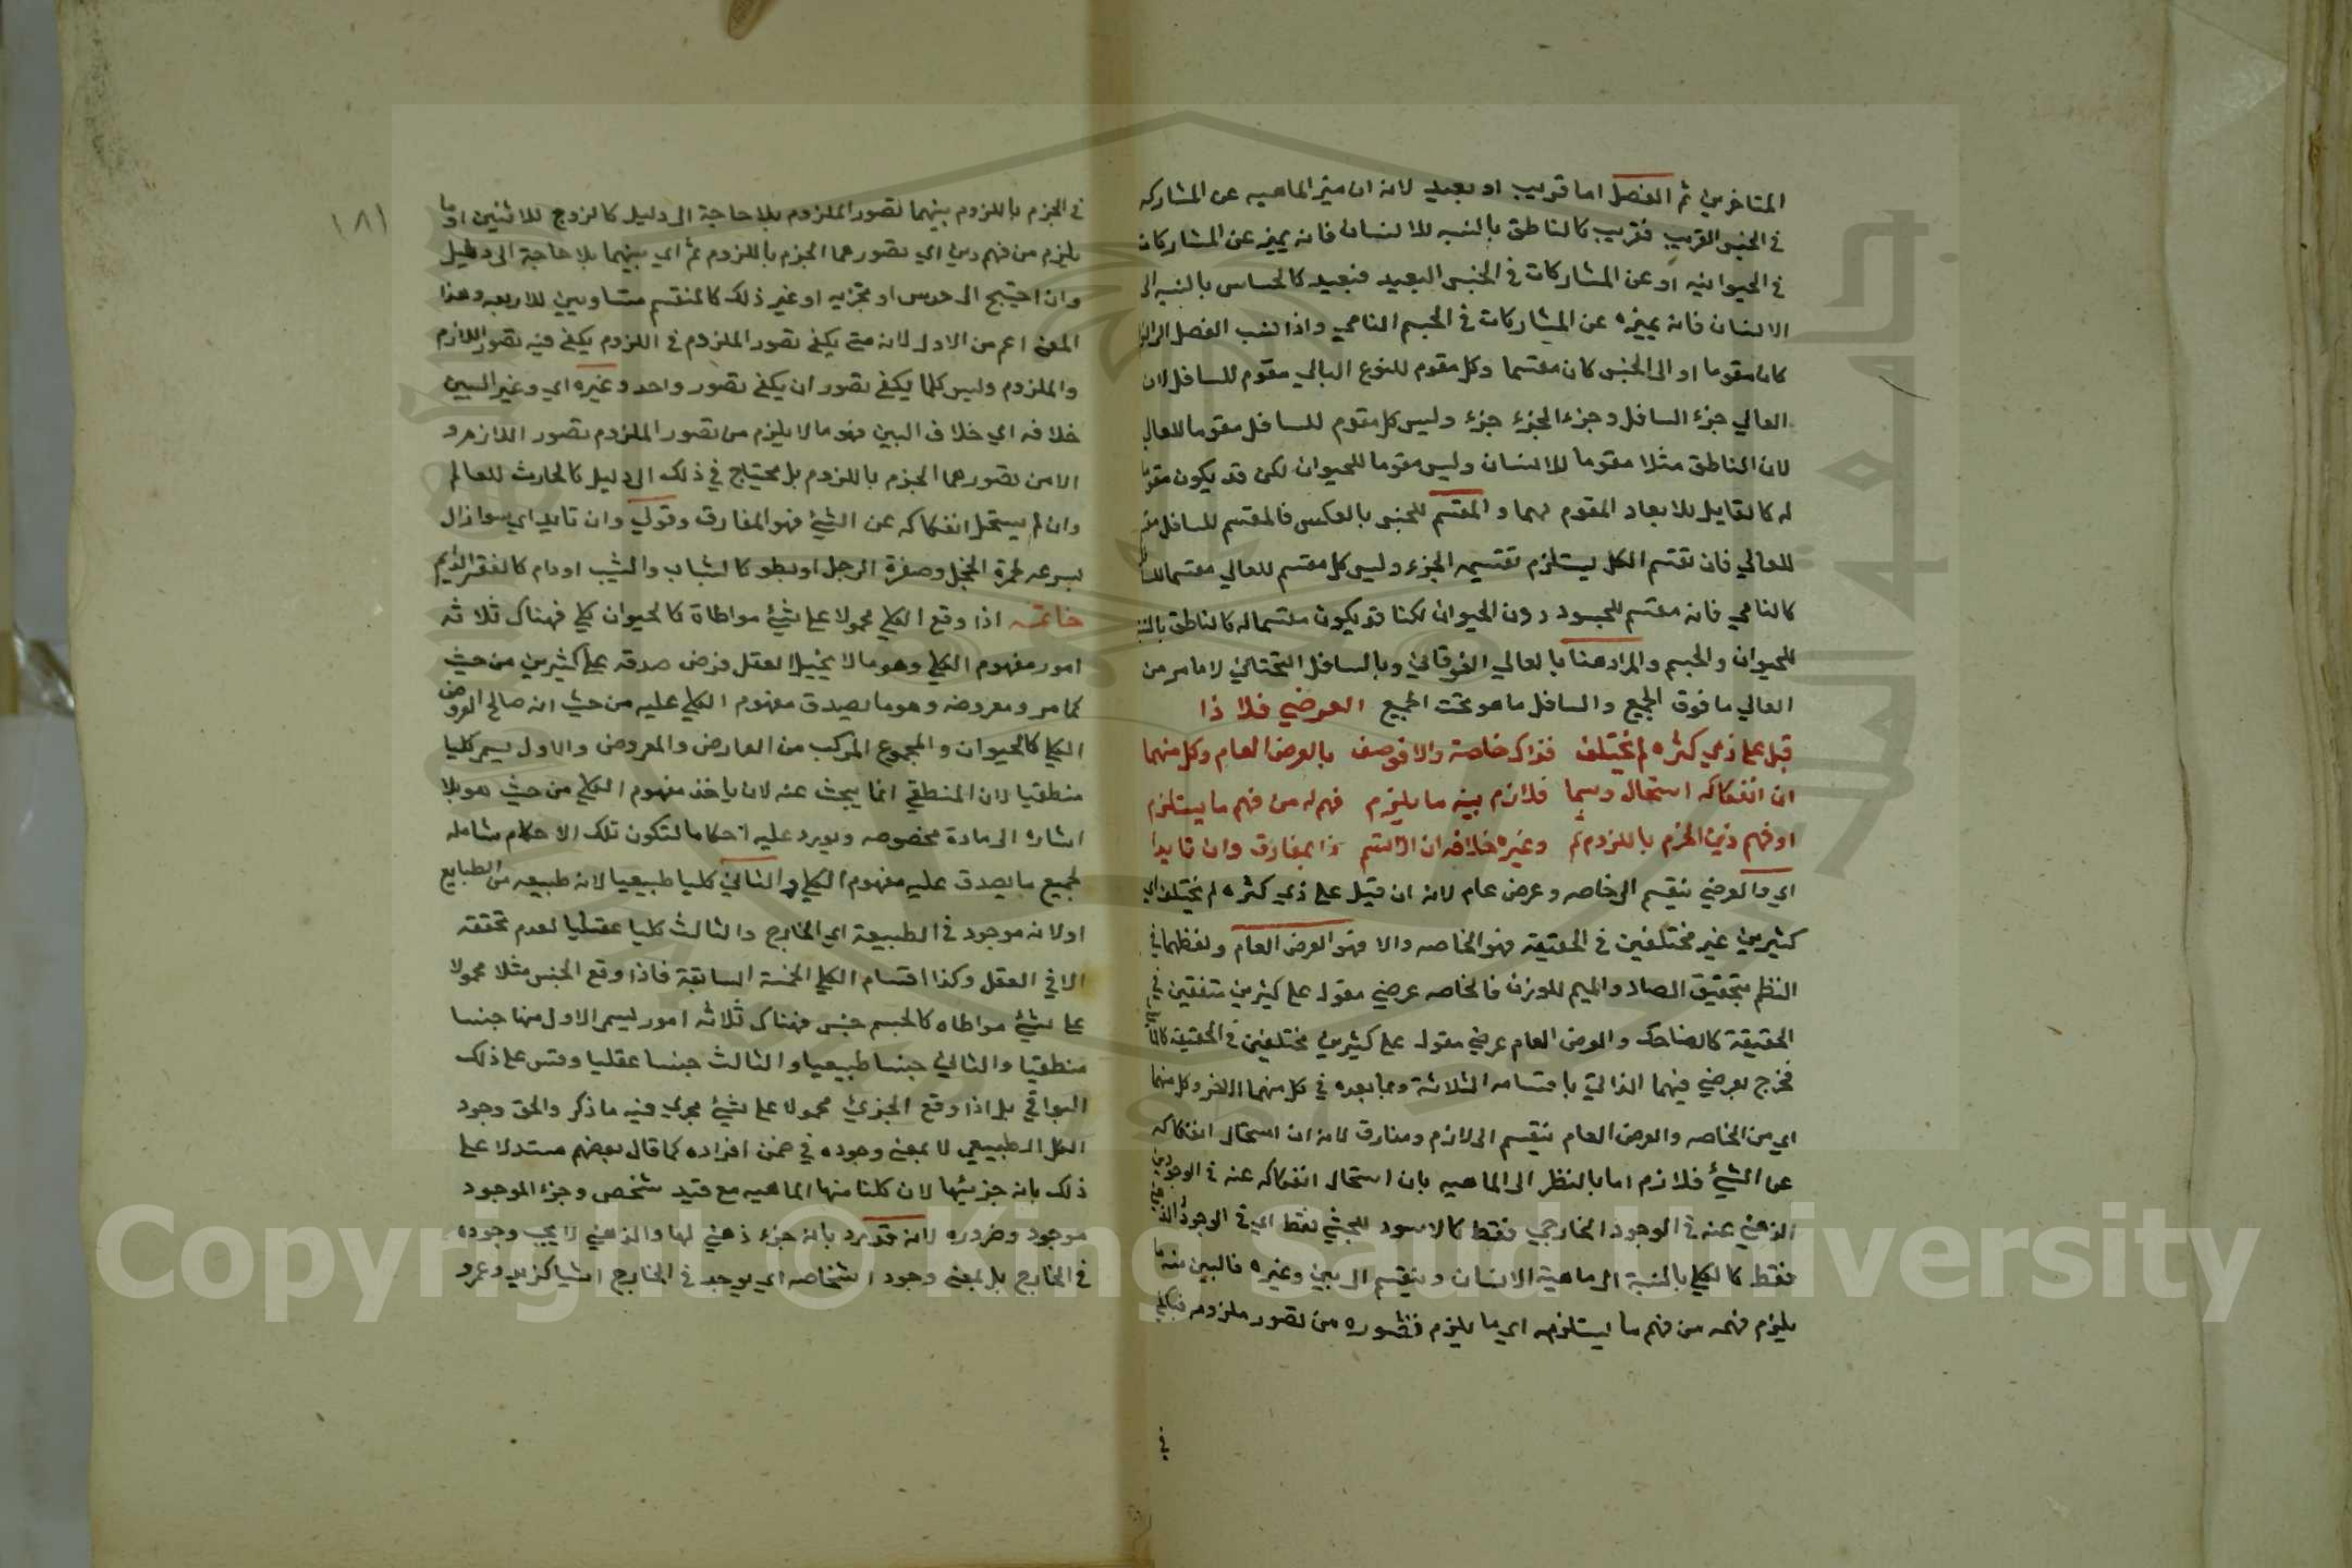 المتاخرين ثم الفصل اما قريب او بعيد لانه ان ميز الماهيه عن المشاركه
في الجنس القريب فقريب كالناطق بالنسبه للانسان فانه يميزه عن المشاركات
في الحيوانيه او عن المشاركات في الجنس البعيد فبعيد كالحساس بالنسبه الى
الانسان فانه يميزه عن المشاركات في الجسم النامي واذا نسب الفصل الى
كان مقوما او الى الجنس كان مقسما وكل مقوم للنوع العالي مقوم للسافل لان
العالي جزء السافل وجزء الجزء جزء وليس كل مقوم للسافل مقوما للعالي
لان الناطق مثلا مقوما للانسان وليس مقوما للحيوان لكن قد يكون مقوما
له كالقابل للابعاد المقوم لهما والمقسم للجنس بالعكس فالمقسم للسافل
للعالي فان تقسم الكل يستلزم تقسيم الجزء وليس كل مقسم للعالي مقسما
كالنامي فانه مقسم للجسود دون الحيوان لكنا قد يكون مقسما له كالناطق
للحيوان والجسم والمراد هنا بالعالي الفوقاني وبالسافل التحتاني لا ما مر من
العالي ما فوق الجميع والسافل ما هو تحت الجميع العرضي فلاذا
قيل على ذي كثره لم يختلف فذاك خاصة والا فوصف بالعرض العام وكل منهما
ان انفكاكه استحال وسما فلازم بينه ما يلزم فهم له من فهم ما يستلزم
او فهم ذين الجزم باللزوم ثم وغيره خلافه ان لا ذا المفارق وان تابدا
اي والعرضي ينقسم الى خاصه وعرض عام لانه ان قيل على ذي كثره لم يختلف اي
كثيرين غير مختلفين في الحقيقه فهو الخاصه والا فهو العرض العام ولفظهما في
النظم بتخفيف الصاد والميم للوزن فالخاصه عرضي مقول على كثيرين متفقين في
الحقيقة كالضاحك والعرض العام عرضي مقول على كثيرين مختلفين في الحقيقه
فخرج بعرضي فيهما الذاتي باقسامه الثلاثة وبما بعده في كل منهما الاخر وكل منهما
اي من الخاصه والعرض العام ينقسم الى لازم ومفارق لانه ان استحال انفكاكه
عن الشئ فلازم اما بالنظر الى الماهيه بان استحال انفكاكه عنه في الوجودين
الذهني عنه في الوجود الخارجي فقط كالاسود للحبشي فقط اي في الوجود الذهني
فقط كالكلي بالنسبة الى ماهية الانسان وينقسم الى بين وغيره فالبين منه ما
يلزم فهمه من فهم ما يستلزمه اي ما يلزم تصوره من تصور ملزومه فيكفي
في
١٨١
في الجزم باللزوم بينهما تصور الملزوم بلا حاجة الى دليل كالزوج للاثنين او ما
يلزم من فهم ذين اي تصورهما الجزم باللزوم ثم اي بينهما بلا حاجة الى دليل
وان احتيج الى حدس او تجربه او غير ذلك كالمنقسم متساويين للاربعه وهذا
المعنى اعم من الاول لانه متى يكفي تصور الملزوم في اللزوم يكفي فيه تصور اللازم
والملزوم وليس كلما يكفي تصور ان يكفي تصور واحد وغيره اي وغير البين
خلافه اي خلاف البين فهو ما لا يلزم من تصور الملزوم تصور اللازم و
الا من تصورهما الجزم باللزوم بل يحتاج في ذلك الى دليل كالحادث للعالم
وان لم يستحل انفكاكه عن الشئ فهو المفارق وقولي وان تابد اي سوا زال
بسرعه كحمرة الخجل وصفرة الوجل او ببطو كالشباب والشيب او دام كالفقر الدايم
خاتمه اذا وقع الكلي محمولا على شئ مواطاة كالحيوان كلي فهناك ثلاثه
امور مفهوم الكلي وهو ما لا يحيل العقل فرض صدقه على كثيرين من حيث
كما مر ومعروضه وهو ما يصدق مفهوم الكلي عليه من حيث انه صالح لعروض
الكلي كالحيوان والمجموع المركب من العارض والمعروض والاول يسمى كليا
منطقيا لان المنطقي انما يبحث عنه لان ياخذ مفهوم الكلي من حيث هو بلا
اشاره الى مادة مخصوصه ويورد عليه احكاما لتكون تلك الاحكام شامله
لجميع ما يصدق عليه مفهوم الكلي والثاني كليا طبيعيا لانه طبيعه من الطبايع
او لانه موجود في الطبيعة اي الخارج والثالث كليا عقليا لعدم تحققه
الا في العقل وكذا اقسام الكلي الخمسة السابقة فاذا وقع الجنس مثلا محمولا
على شئ مواطاه كالجسم جنس فهناك ثلاثه امور يسمى الاول منها جنسا
منطقيا والثاني جنسا طبيعيا والثالث جنسا عقليا وقس على ذلك
البواقي بل اذا وقع الجزئي محمولا على شئ يجري فيه ما ذكر والحق وجود
الكل الطبيعي لا بمعنى وجوده في ضمن افراده كما قال بعضهم مستدلا على
ذلك بانه جزئيها لان كلنا منها الماهيه مع قيد شخص وجزء الموجود
موجود وضروره لانه قد يرد بانه جزء ذهني لها والذهني لا يجب وجوده
في الخارج بل بمعنى وجود اشخاصه اي يوجد في الخارج اشيا كزيد وعمرو
Copyright © King Saud University